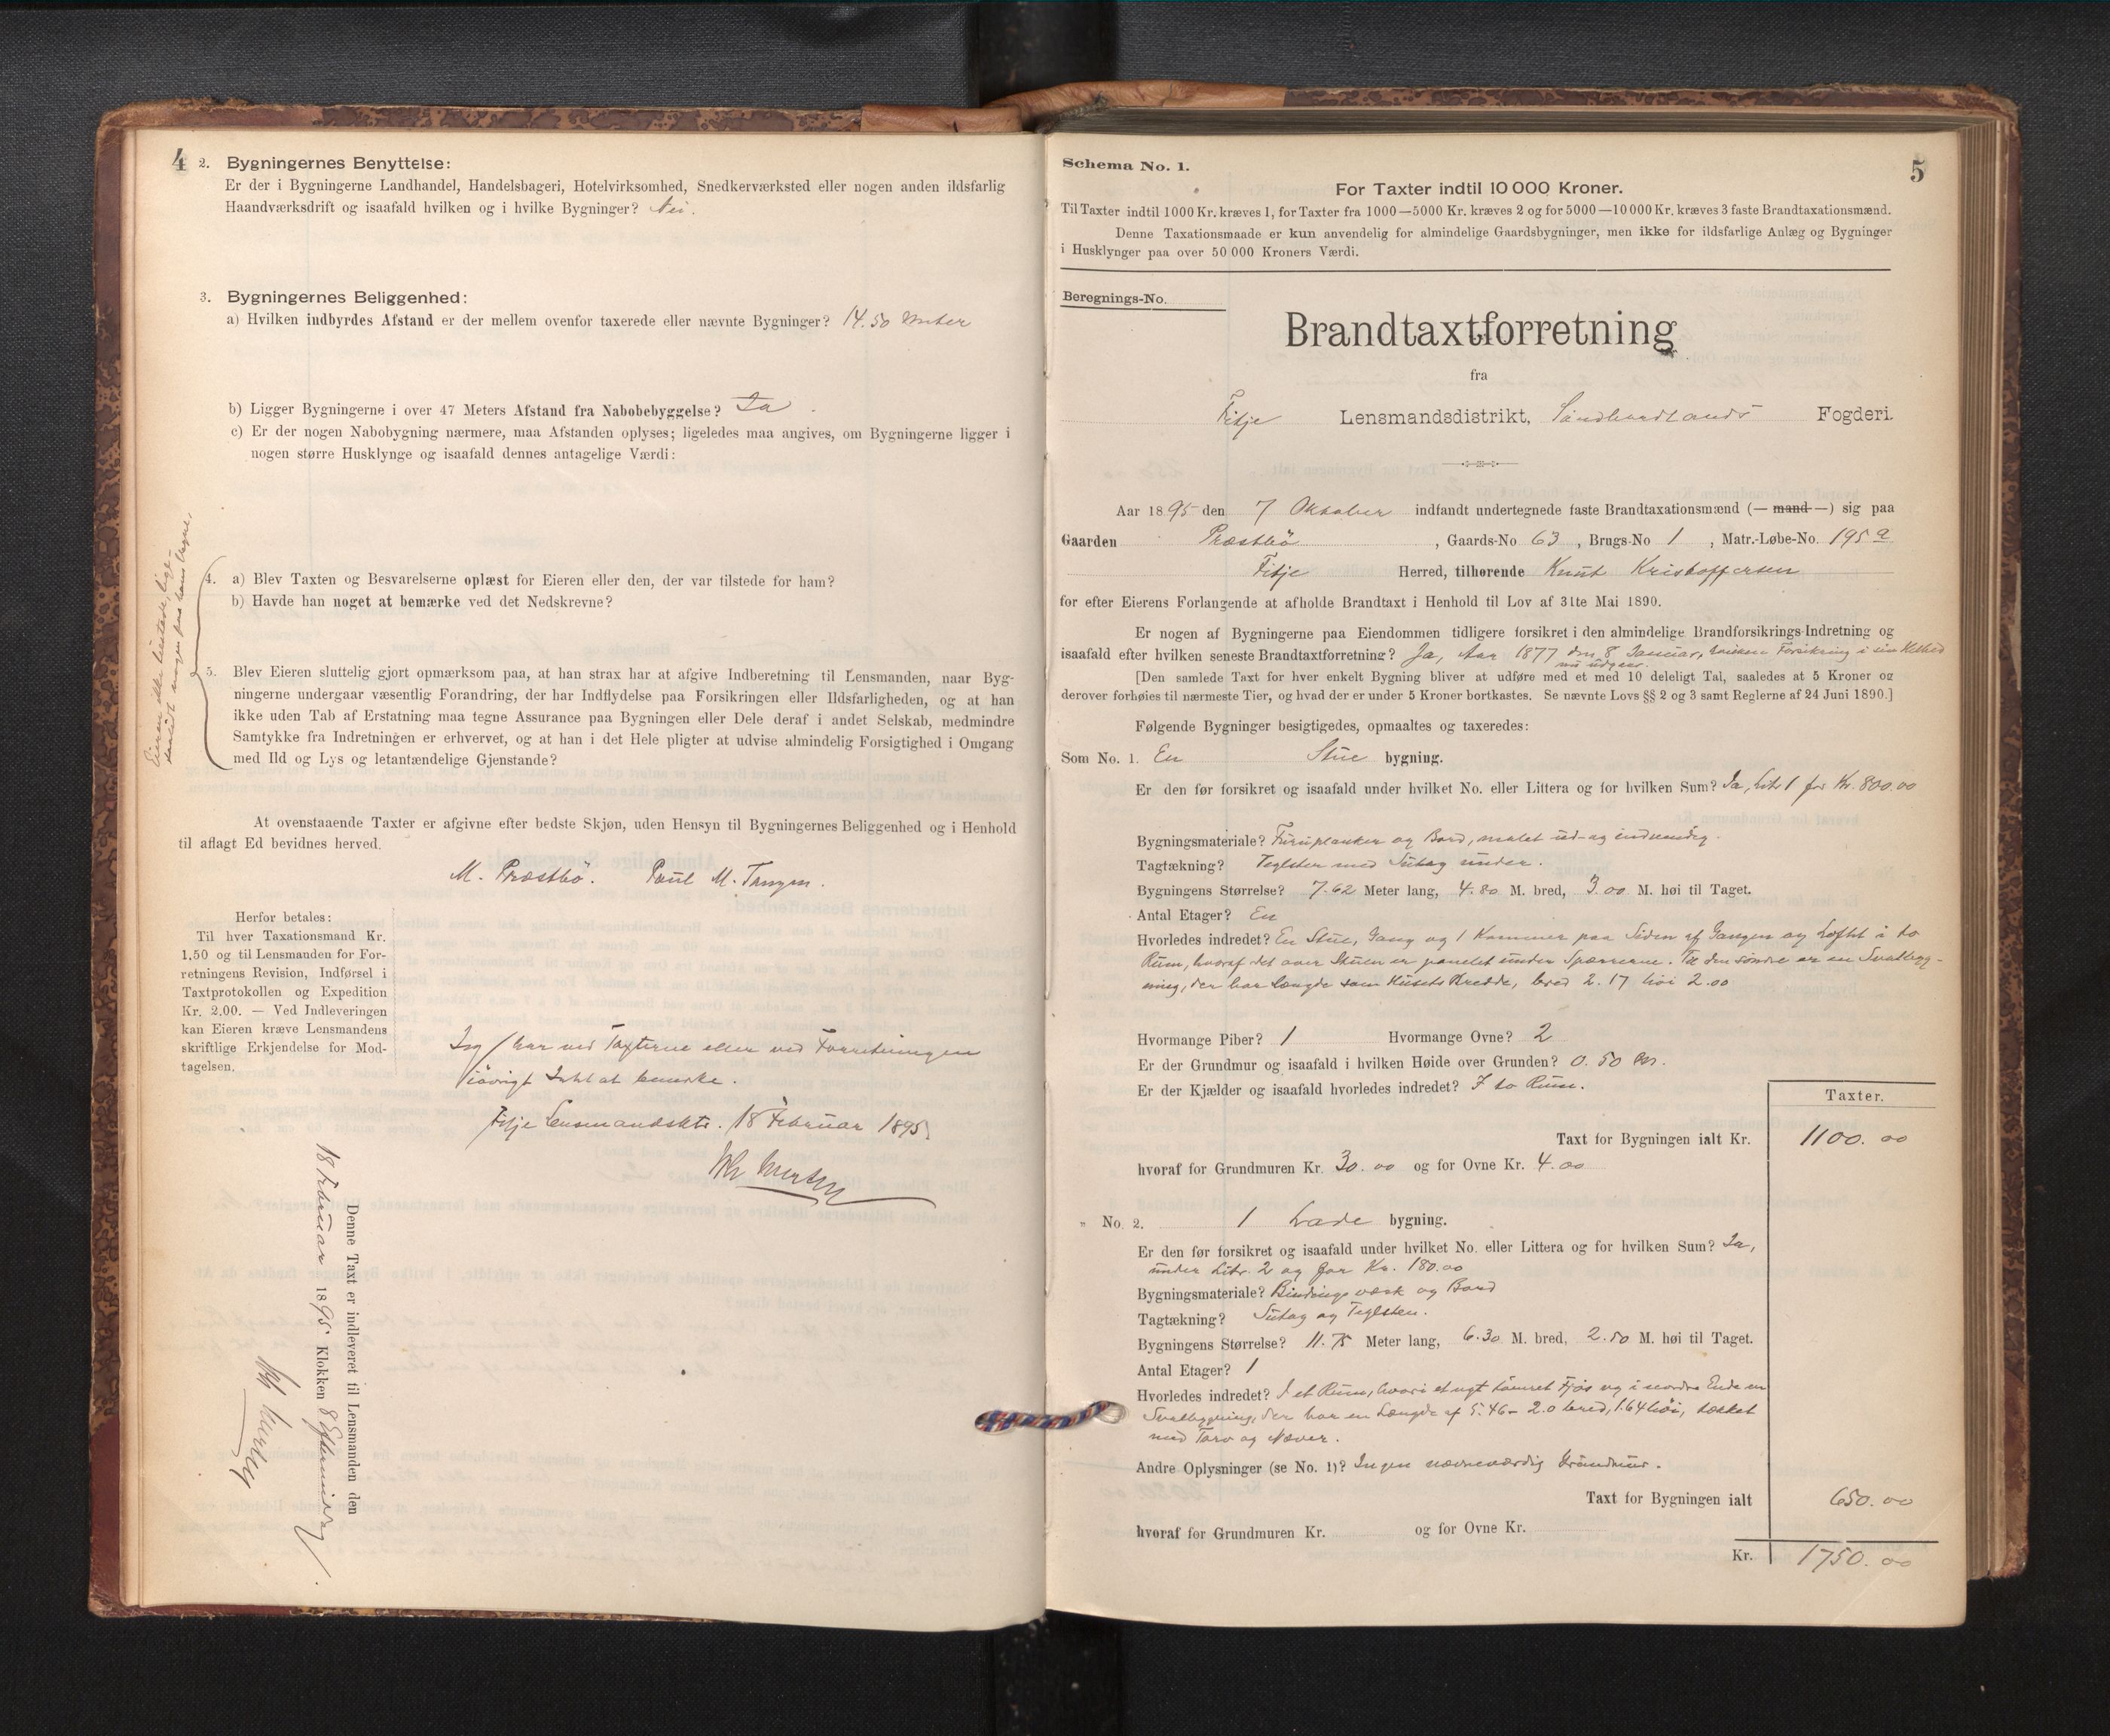 4
2. Bygningernes Benyttelse:
Er der i Bygningerne Landhandel, Handelsbageri, Hotelvirksomhed, Snedkerværksted eller nogen anden ildsfarlig
Haandværksdrift og isaafald hvilken og i hvilke Bygninger? Nei.
3. Bygningernes Beliggenhed:
a) Hvilken indbyrdes Afstand er der mellem ovenfor taxerede eller nævnte Bygninger? 14.50 Meter
b) Ligger Bygningerne i over 47 Meters Afstand fra Nabobebyggelse? Ja.
c) Er der nogen Nabobygning nærmere, maa Afstanden oplyses; ligeledes maa angives, om Bygningerne ligger i
nogen større Husklynge og isaafald dennes antagelige Værdi:
4. a) Blev Taxten og Besvarelserne oplæst for Eieren eller den, der var tilstede for ham?
b) Havde han noget at bemærke ved det Nedskrevne?
Eieren ikke tilstede, lige-
saalidt nogen paa hans Vegne.
5. Blev Eieren sluttelig gjort opmærksom paa, at han strax har at afgive Indberetning til Lensmanden, naar Byg-
ningerne undergaar væsentlig Forandring, der har Indflydelse paa Forsikringen eller Ildsfarligheden, og at han
ikke uden Tab af Erstatning maa tegne Assurance paa Bygningen eller Dele deraf i andet Selskab, medmindre
Samtykke fra Indretningen er erhvervet, og at han i det Hele pligter at udvise almindelig Forsigtighed i Omgang
med Ild og Lys og letantændelige Gjenstande?
At ovenstaaende Taxter er afgivne efter bedste Skjøn, uden Hensyn til Bygningernes Beliggenhed og i Henhold
til aflagt Ed bevidnes herved.
M. Præstbö. Poul M. Tangen.
Herfor betales:
Til hver Taxationsmand Kr.
1,50 og til Lensmanden for For-
retningens Revision, Indførsel i
Taxtprotokollen og Expedition
Kr. 2,00. — Ved Indleveringen
kan Eieren kræve Lensmandens
skriftlige Erkjendelse for Mod-
tagelsen.
Jeg har ved Taxterne eller ved Forretningen
iövrigt Intet at bemerke.
Fitje Lensmandsktr. 18 Februar 1895.
Denne Taxt er indleveret til Lensmanden den
18 Februar 1895 Klokken 8 Eftermiddag
5
Schema No. 1.
For Taxter indtil 10 000 Kroner.
Til Taxter indtil 1000 Kr. kræves 1, for Taxter fra 1000—5000 Kr. kræves 2 og for 5000—10 000 Kr. kræves 3 faste Brandtaxationsmænd.
Denne Taxationsmaade er kun anvendelig for almindelige Gaardsbygninger, men ikke for ildsfarlige Anlæg og Bygninger
i Husklynger paa over 50 000 Kroners Værdi.
Beregnings-No.
Brandtaxtforretning
fra
Fitje Lensmandsdistrikt, Söndhordlands Fogderi.
Aar 1895 den 7 Oktober indfandt undertegnede faste Brandtaxationsmænd (— mand —) sig paa
Gaarden Præstbö, Gaards-No 63, Brugs-No 1, Matr.-Løbe-No. 195 a
Fitje Herred, tilhørende Knut Kristoffersen
for efter Eierens Forlangende at afholde Brandtaxt i Henhold til Lov af 31te Mai 1890.
Er nogen af Bygningerne paa Eiendommen tidligere forsikret i den almindelige Brandforsikrings-Indretning og
isaafald efter hvilken seneste Brandtaxtforretning? Ja, Aar 1877 den 8 Januar, hvilken Forsikring i sin Helhed
nu udgaar.
[Den samlede Taxt for hver enkelt Bygning bliver at udføre med et med 10 deleligt Tal, saaledes at 5 Kroner og
derover forhøies til nærmeste Tier, og hvad der er under 5 Kroner bortkastes. Se nævnte Lovs §§ 2 og 3 samt Reglerne af 24 Juni 1890.]
Følgende Bygninger besigtigedes, opmaaltes og taxeredes:
Som No. 1. En Stue bygning.
Er den før forsikret og isaafald under hvilket No. eller Littera og for hvilken Sum? Ja, Litr 1 for Kr. 800.00
Bygningsmateriale? Furuplanker og Bord, malet ud- og indvendig.
Tagtækning? Teglsten med Sutag under.
Bygningens Størrelse? 7.62 Meter lang, 4.80 M. bred, 3.00 M. høi til Taget.
Antal Etager? En
Hvorledes indredet? En Stue, Gang og 1 Kammer paa Siden af Gangen og Loftet i to
Rum, hvoraf det over Stuen er panelet under Spærrerne. Til den söndre er en Svalbyg-
ning, der har Længde som Husets Bredde, bred 2.17 höi 2.00
Hvormange Piber? 1 Hvormange Ovne? 2
Er der Grundmur og isaafald i hvilken Høide over Grunden? 0.50 m.
Er der Kjælder og isaafald hvorledes indredet? I to Rum.
Taxter.
Taxt for Bygningen ialt Kr. 1100.00
hvoraf for Grundmuren Kr. 30.00 og for Ovne Kr. 4.00
„ No. 2. 1 Lade bygning.
Er den før forsikret og isaafald under hvilket No. eller Littera og for hvilken Sum? Ja,
under Litr. 2 og for Kr. 180.00
Bygningsmateriale? Bindingsværk og Bord
Tagtækning? Sutag og Teglsten.
Bygningens Størrelse? 11.75 Meter lang, 6.30 M. bred, 2.50 M. høi til Taget.
Antal Etager? 1
Hvorledes indredet? I et Rum, hvori et nyt tömret Fjös og i nordre Ende en
Svalbygning, der har en Længde af 5.46 - 2.0 bred, 1.64 höi, tækket
med Torv og Næver.
Andre Oplysninger (se No. 1)? Ingen nævneværdig Grundmur.
Taxt for Bygningen ialt 650.00
hvoraf for Grundmuren Kr. og for Ovne Kr.
Kr. 1750.00